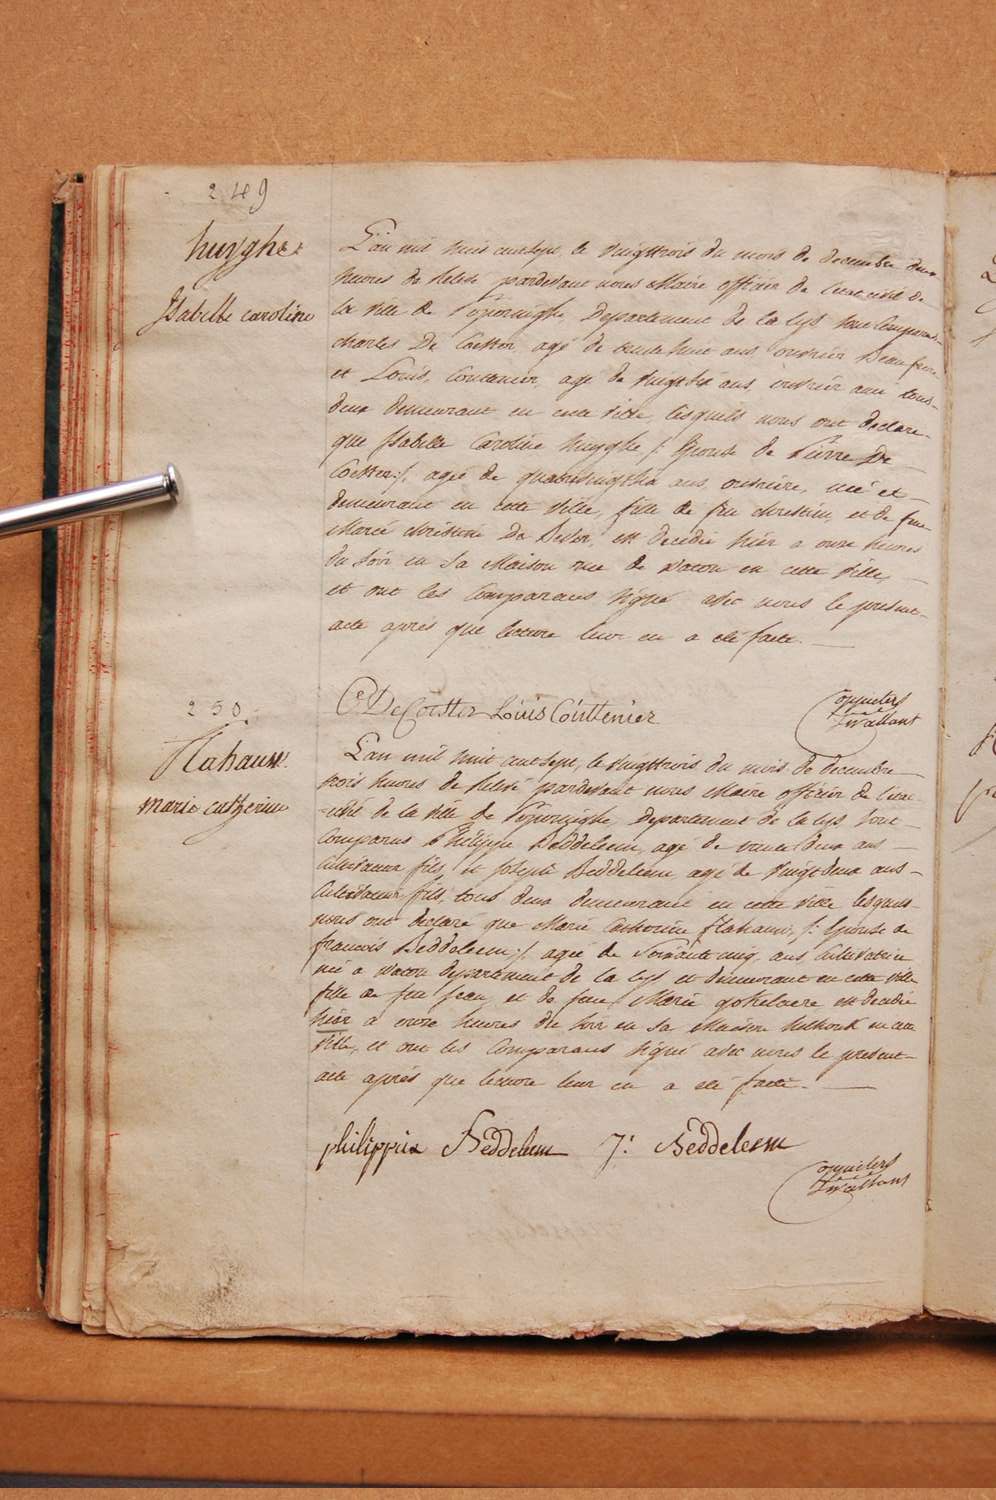 249
huyghe
Isabelle caroline
L'an mil huit cent sept, le vingttrois du mois de decembre deux
heures de relevé pardevant nous Maire officier de l'etat civil de
la ville de Poperinghe, Departement de la lys sont comparus
charles De Coester agé de trente huit ans ouvrier Beau frere
et Louis Couttenier, agé de vingt six ans, ouvrier ami tous
deux demeurant en cette ville, lesquels nous ont declaré
que Isabelle Caroline huyghe /: Epouse de Pierre De
Coester:/, agée de quatrevingt ans, ouvriere, née et
demeurant en cette ville, fille de feu christien, et de feue
Marie christine De est decedée hier a onze heures
du soir en sa Maison rue de watou en cette ville,
et ont les comparans signé avec nous le present
acte aprés que lecture leur en a eté faite.
C De Coester Louis Couttenier
250.
Flahauw.
marie catherine
L'an mil huit cent sept, le vingttrois du mois de decembre
trois heures de relevé pardevant nous Maire officier de l'etat
civil de la ville de Poperinghe Departement de la lys sont
Comparus Philippe Beddeleem, agé de trente deux ans
Cultivateur fils, et Joseph Beddeleem agé de vingt deux ans
Cultivateur fils, tous deux demeurant en cette ville lesquels
nous ont declaré que Marie Catherine flahauw, /: Epouse de
francois Beddeleem:/ agée de Soixante cinq, ans Cultivatrice
née a watou departement de la lys et demeurant en cette ville
fille de feu Jean, et de feue Marie est decedée
hier a onze heures du soir en sa Maison en cette
ville, et ont les Comparans signé avec nous le present
acte aprés que lecture leur en a eté faite.
philippis Beddeleem J: Beddeleem